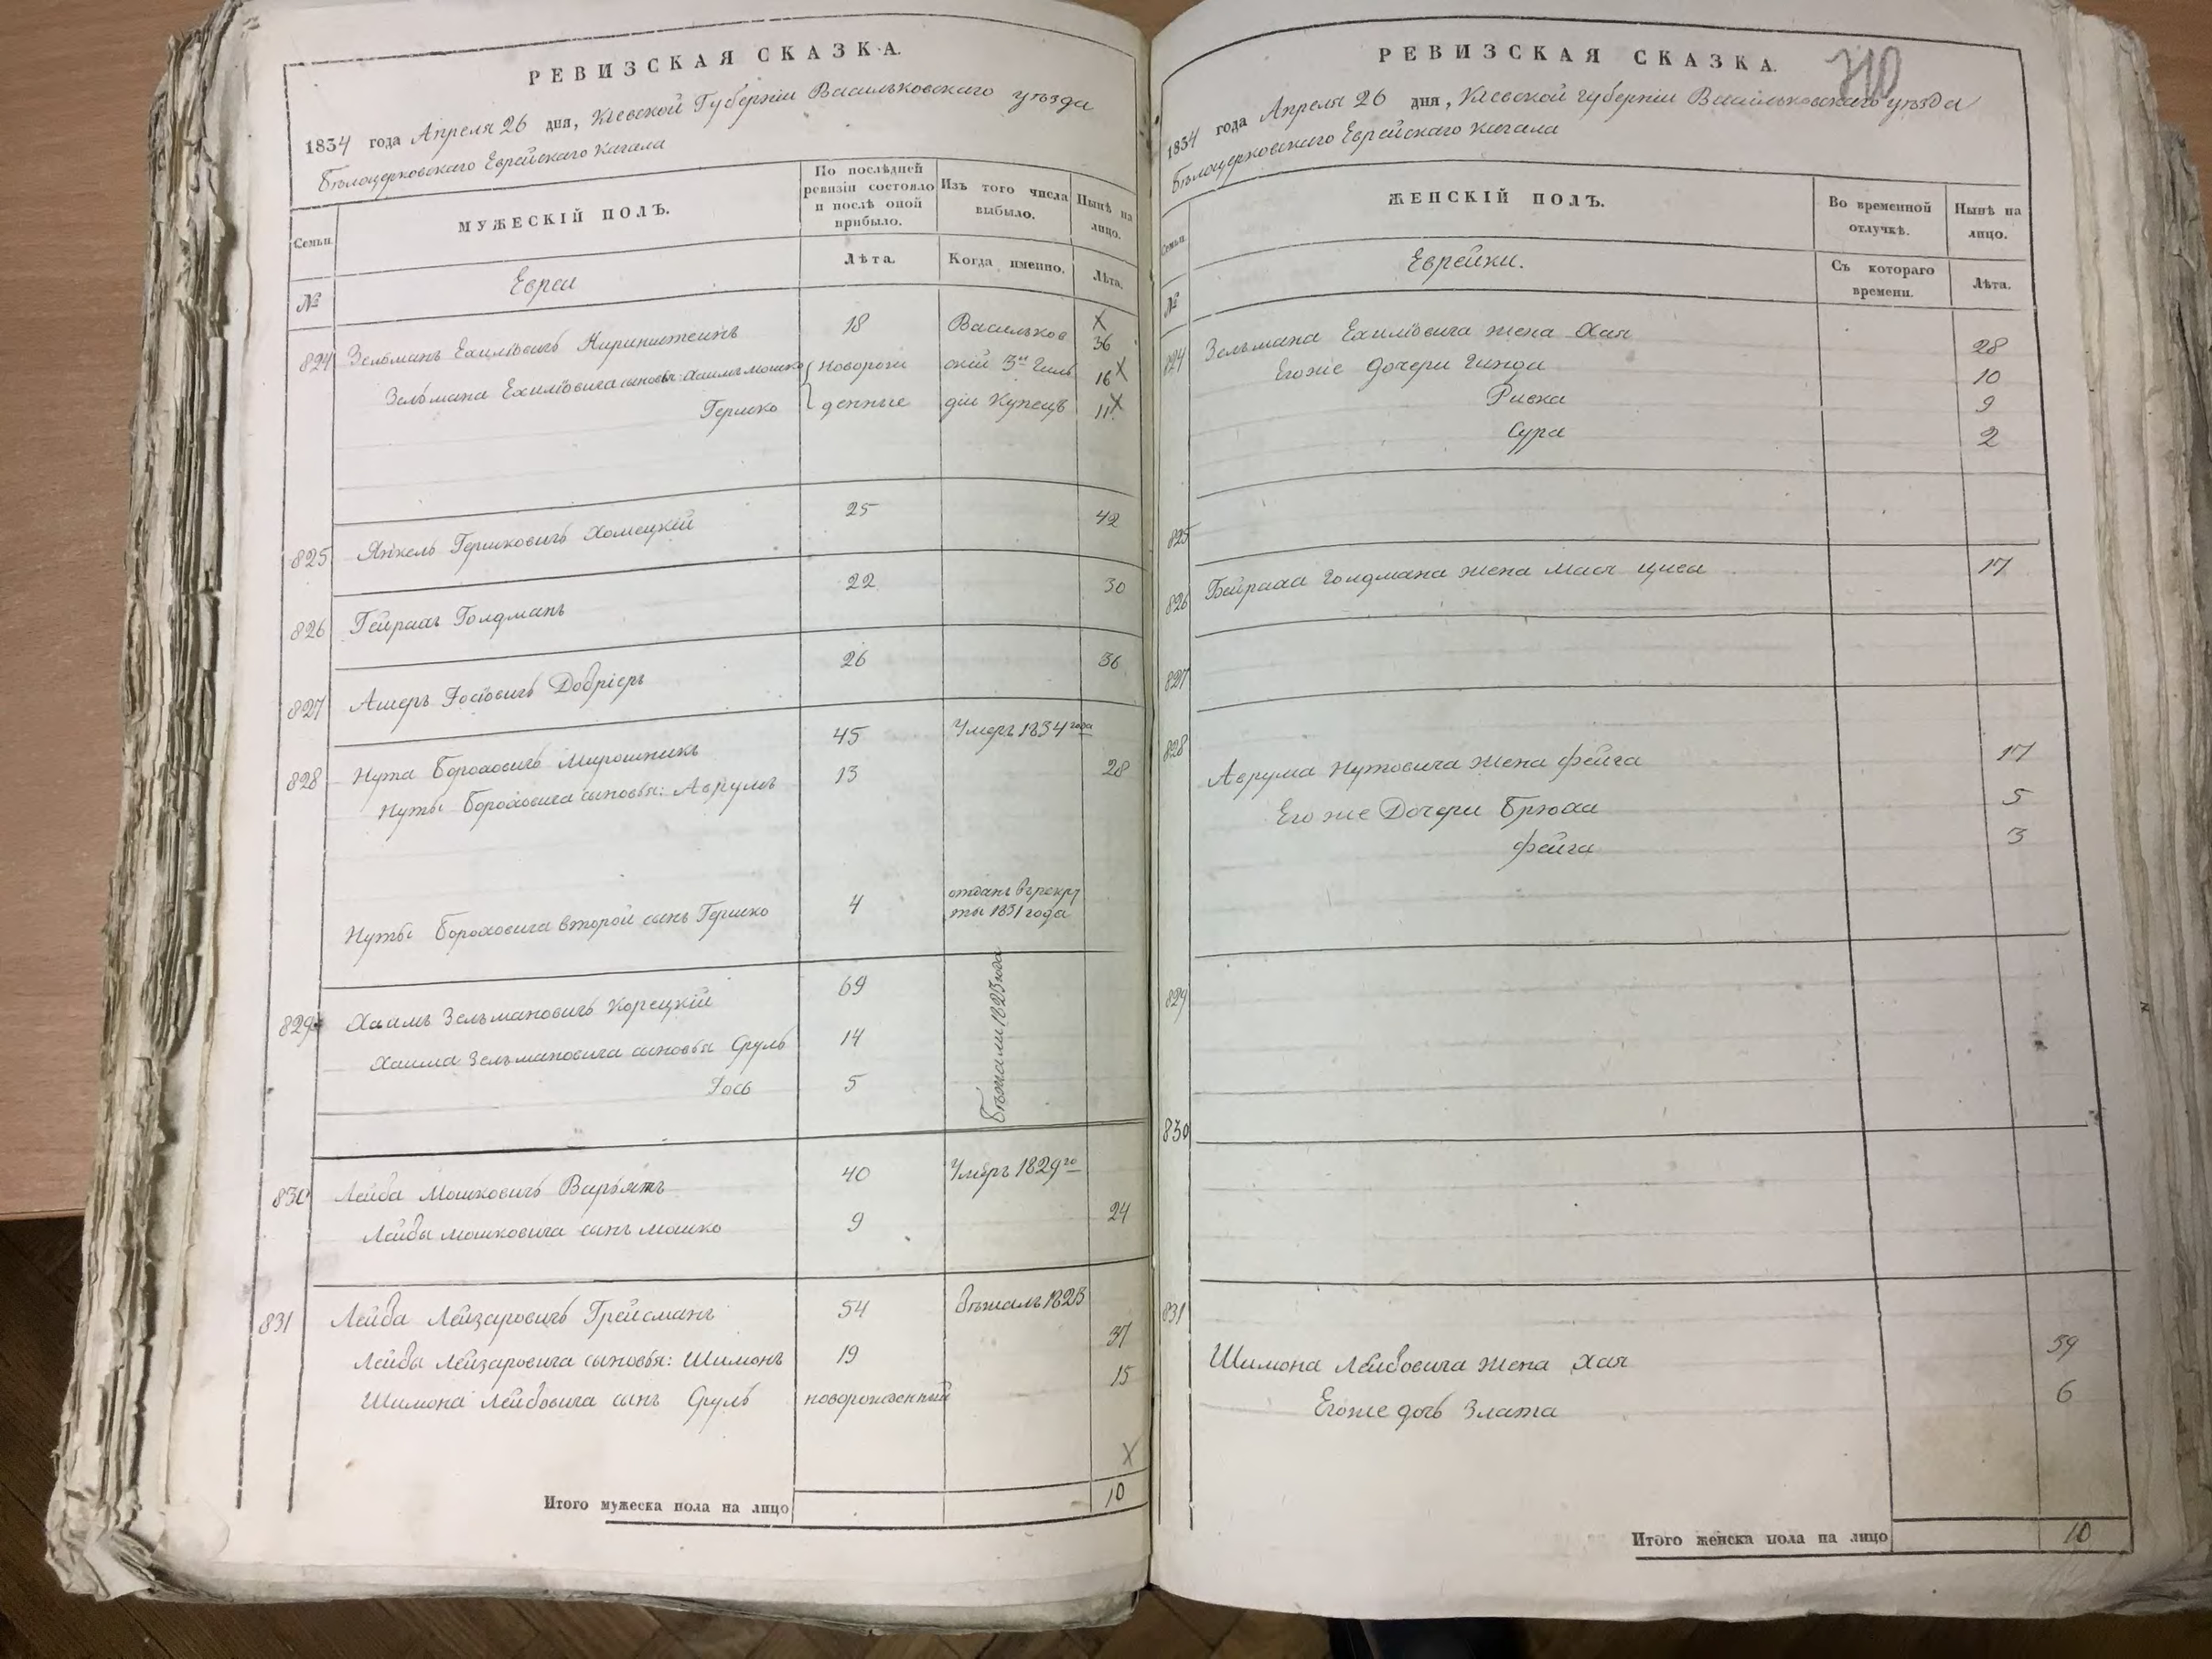 РЕВИЗСКАЯ СКАЗКА.
1834 года Апреля 26 дня, Кіевской Губерніи Васильковскаго уѣзда
Бѣлоцерковскаго Еврейскаго Кагала
Семьи.
МУЖЕСКІЙ ПОЛЪ.
По послѣдней ревизіи состояло и послѣ оной прибыло.
Изъ того числа выбыло.
Нынѣ на лицо.
№
Евреи
Лѣта.
Когда именно.
Лѣта.
824 Зельманъ Ехилiовичъ 18 Васильков X 36
Зельмана Ехилiовича сыновья: Хаимъ мошко новорож скій 3й Гиль 16 X
Гершко денные діи Купецъ 11 X
825 Янкель Гершковичъ Хомецкій 25 42
826 Бейрахъ Голдманъ 22 30
827 Ашеръ Iосiовичъ Добрiеръ 26 36
828 Нута Бороховичъ Мирошникъ 45 Умеръ 1834 года
Нуты Бороховича сыновья: Аврумъ 13 28
Нуты Бороховича второй сынъ Гершко 4 отданъ в рекру
ты 1831 года
829 Хаимъ Зельмановичъ Корецкій 69 Бѣжали 1823 года
Хаима Зельмановича сыновья Сруль 14
Iось 5
830 Лейба Мошковичъ 40 Умеръ 1829го
Лейбы мошковича сынъ мошко 9 24
831 Лейба Лейзаровичъ Грейсманъ 54 бѣжалъ 1823
Лейбы Лейзаровича сыновья: Шимонъ 19 37
Шимона Лейбовича сынъ Сруль новорожденный 15
X
Итого мужеска пола на лицо 10
РЕВИЗСКАЯ СКАЗКА.
710
1834 года Апреля 26 дня, Кіевской губерніи Васильковскаго уѣзда
Бѣлоцерковскаго Еврейскаго Кагала
Семьи.
ЖЕНСКІЙ ПОЛЪ.
Во временной отлучкѣ.
Нынѣ на лицо.
№
Еврейки.
Съ котораго времени.
Лѣта.
824 Зельмана Ехилiовича жена Хая 28
Его же дочери Гинда 10
Ривка 9
Сура 2
825
826 Бейраха Голдмана жена 17
827
828 Аврума Нутовича жена фейга 17
Его же Дочери Брюха 5
фейга 3
829
830
831
Шимона Лейбовича жена Хая 39
Его же дочь Злата 6
Итого женска пола на лицо 10